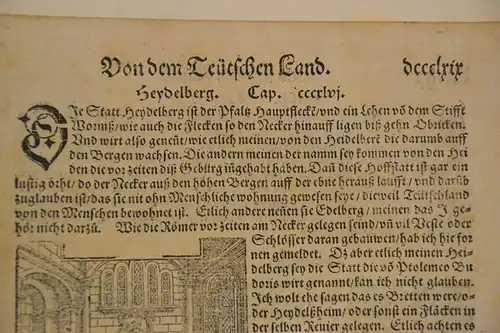 Von dem Teütschen Land. dccclxix
Heydelberg. Cap. cccxlvj.
DJe Statt Heydelberg ist der Pfaltz Hauptfleckē/vnd ein Lehen vō dem Stifft
Wormß/wie auch die Flecken so den Necker hinauff ligen biß gehn Obricken.
Vnd wirt also geneñt/wie etlich meinen/von den Heidelberē die darumb auff
den Bergen wachsen. Die andern meinen der namm sey kommen von den Hei
den die vor zeiten diß Gebürg inngehabt haben. Daň diese Hoffstatt ist gar ein
lustig örht/do der Necker auß den höhen Bergen auff der ebne herauß laufft/vnd darüb
zuglauben ist/das sie nit ohn Menschliche wohnung gewesen seye/dieweil Teütschland
von den Menschen bewohnet ist. Etlich andere neñen sie Edelberg/meinen das J ge-
hör nicht darzů. Wie die Römer vor zeiten am Necker gelegen seind/vň vil Veste oder
Schlösser daran gebauwen/hab ich hie for
nen gemeldet. Dz aber etlich meinen Hei-
delberg sey die Statt die vō Ptolemeo Bu
doris wirt genannt/kan ich nicht glauben.
Jch wolt ehe sagen das es Bretten were/o-
der Heydelßheim/oder sonst ein Flåcken in
der selben Reuier gelegen. Etlich achten es